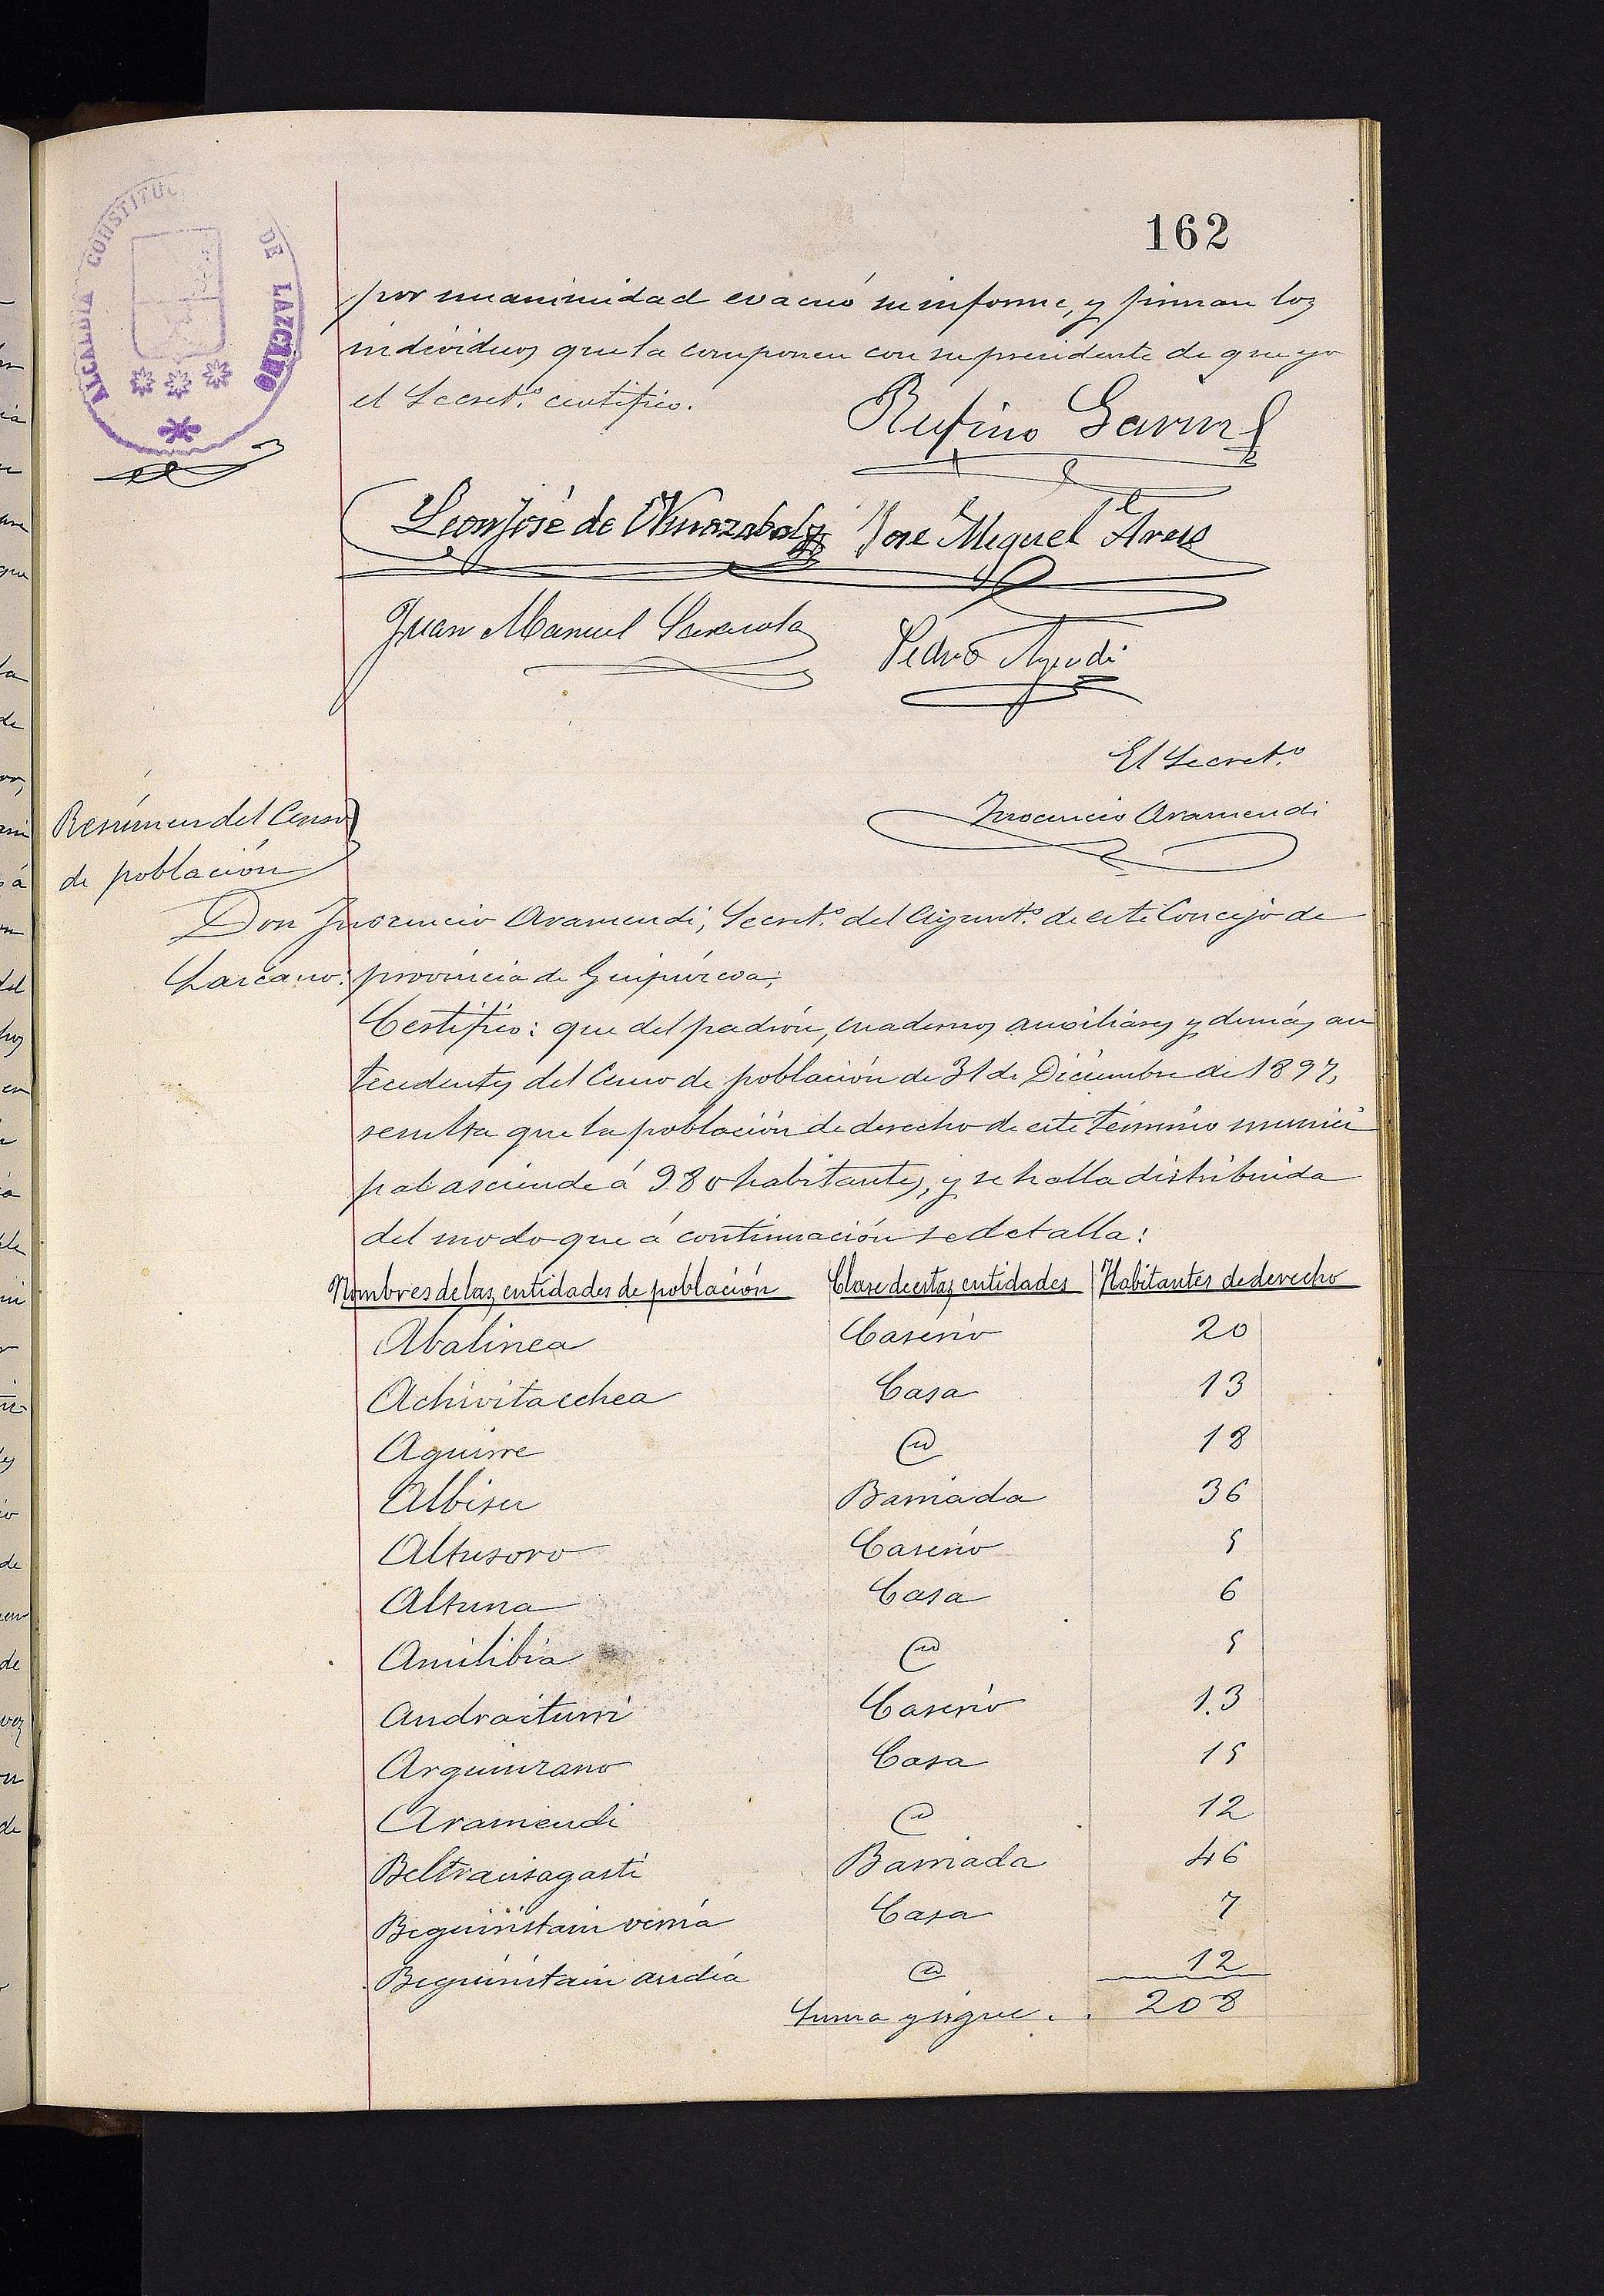 162
ALCALDIA CONSTITUC DE LAZCANO
por unanimidad evacuó su informe, y firman los
individuos que la componen con su presidente de que yo
el Secret.º certifico.
Rufino
Leon José de José Miguel
Juan Manuel
Pedro
El Secret.º
Inocencio Aramendi
Resúmen del Censo
de población
Don Inocencio Aramendi, Secret.º del Ayunt.º de este Concejo de
Lazcano: provincia de Guipúrcoa;
Certifico: que del padrón, cuadernos auxiliares y demás an
tecedentes del Censo de población de 31 de Diciembre de 1897,
resulta que la población de derecho de este término munici
pal asciende á 980 habitantes, y se halla distribuida
del modo que á continuación se detalla:
Nombres de las entidades de población Clase de estas entidades Habitantes de derecho
Abalinea Caserio 20
Achivitaechea Casa 13
Aguirre @ 18
Albisu Barriada 36
Altusoro Caserio 5
Altuna Casa 6
Amilibia @ 5
Andraiturri Caserio 13
Arguinzano Casa 15
Aramendi @ 12
Beltransagasti Barriada 46
Beguiristain verria Casa 7
Beguiristain andia @ 12
Suma y sigue . . 208